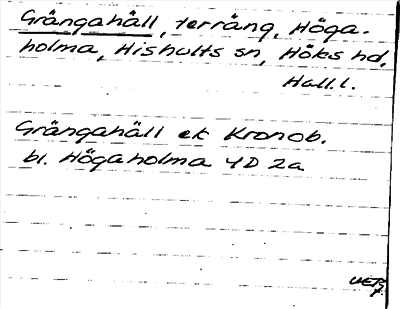 Grängahäll, terräng, Höga-
holma, Hishults sn, Höks hd,
Hall.l.
Grängahäll ek Kronob.
bl. Högaholma 4D 2a